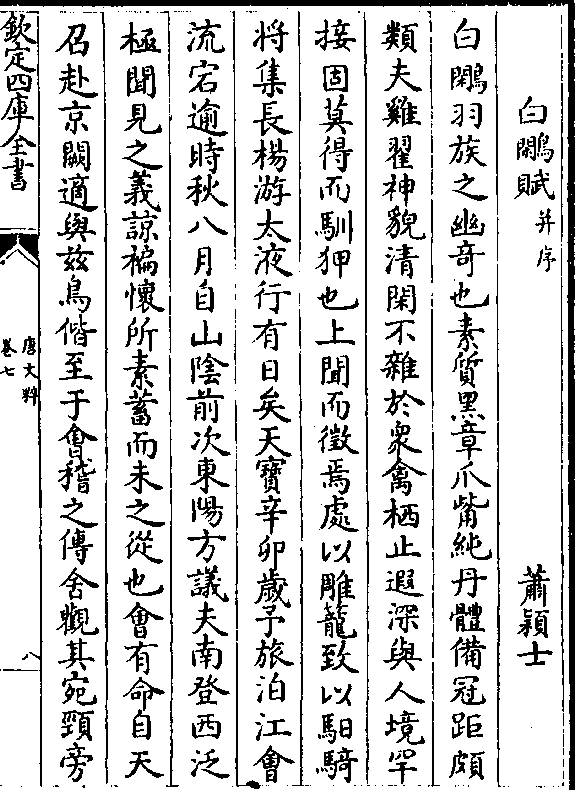 白鷴賦并序
蕭穎士
白鷴羽族之幽竒也素質黒章爪觜純丹體備冠距頗
類夫雞翟神貌清閑不雜於衆禽栖止遐深與人境罕
接固莫得而馴狎也上聞而徵焉處以雕籠致以馹騎
将集長楊游太液行有日矣天寳辛卯歲予旅泊江會
流宕逾時秋八月自山陰前次東陽方議夫南登西泛
極聞見之義諒褊懷所素蓄而未之從也會有命自天
召赴京闕適與兹鳥偕至于會稽之傳舍觀其宛頸旁
欽定四庫全書
唐文粹
卷七
八